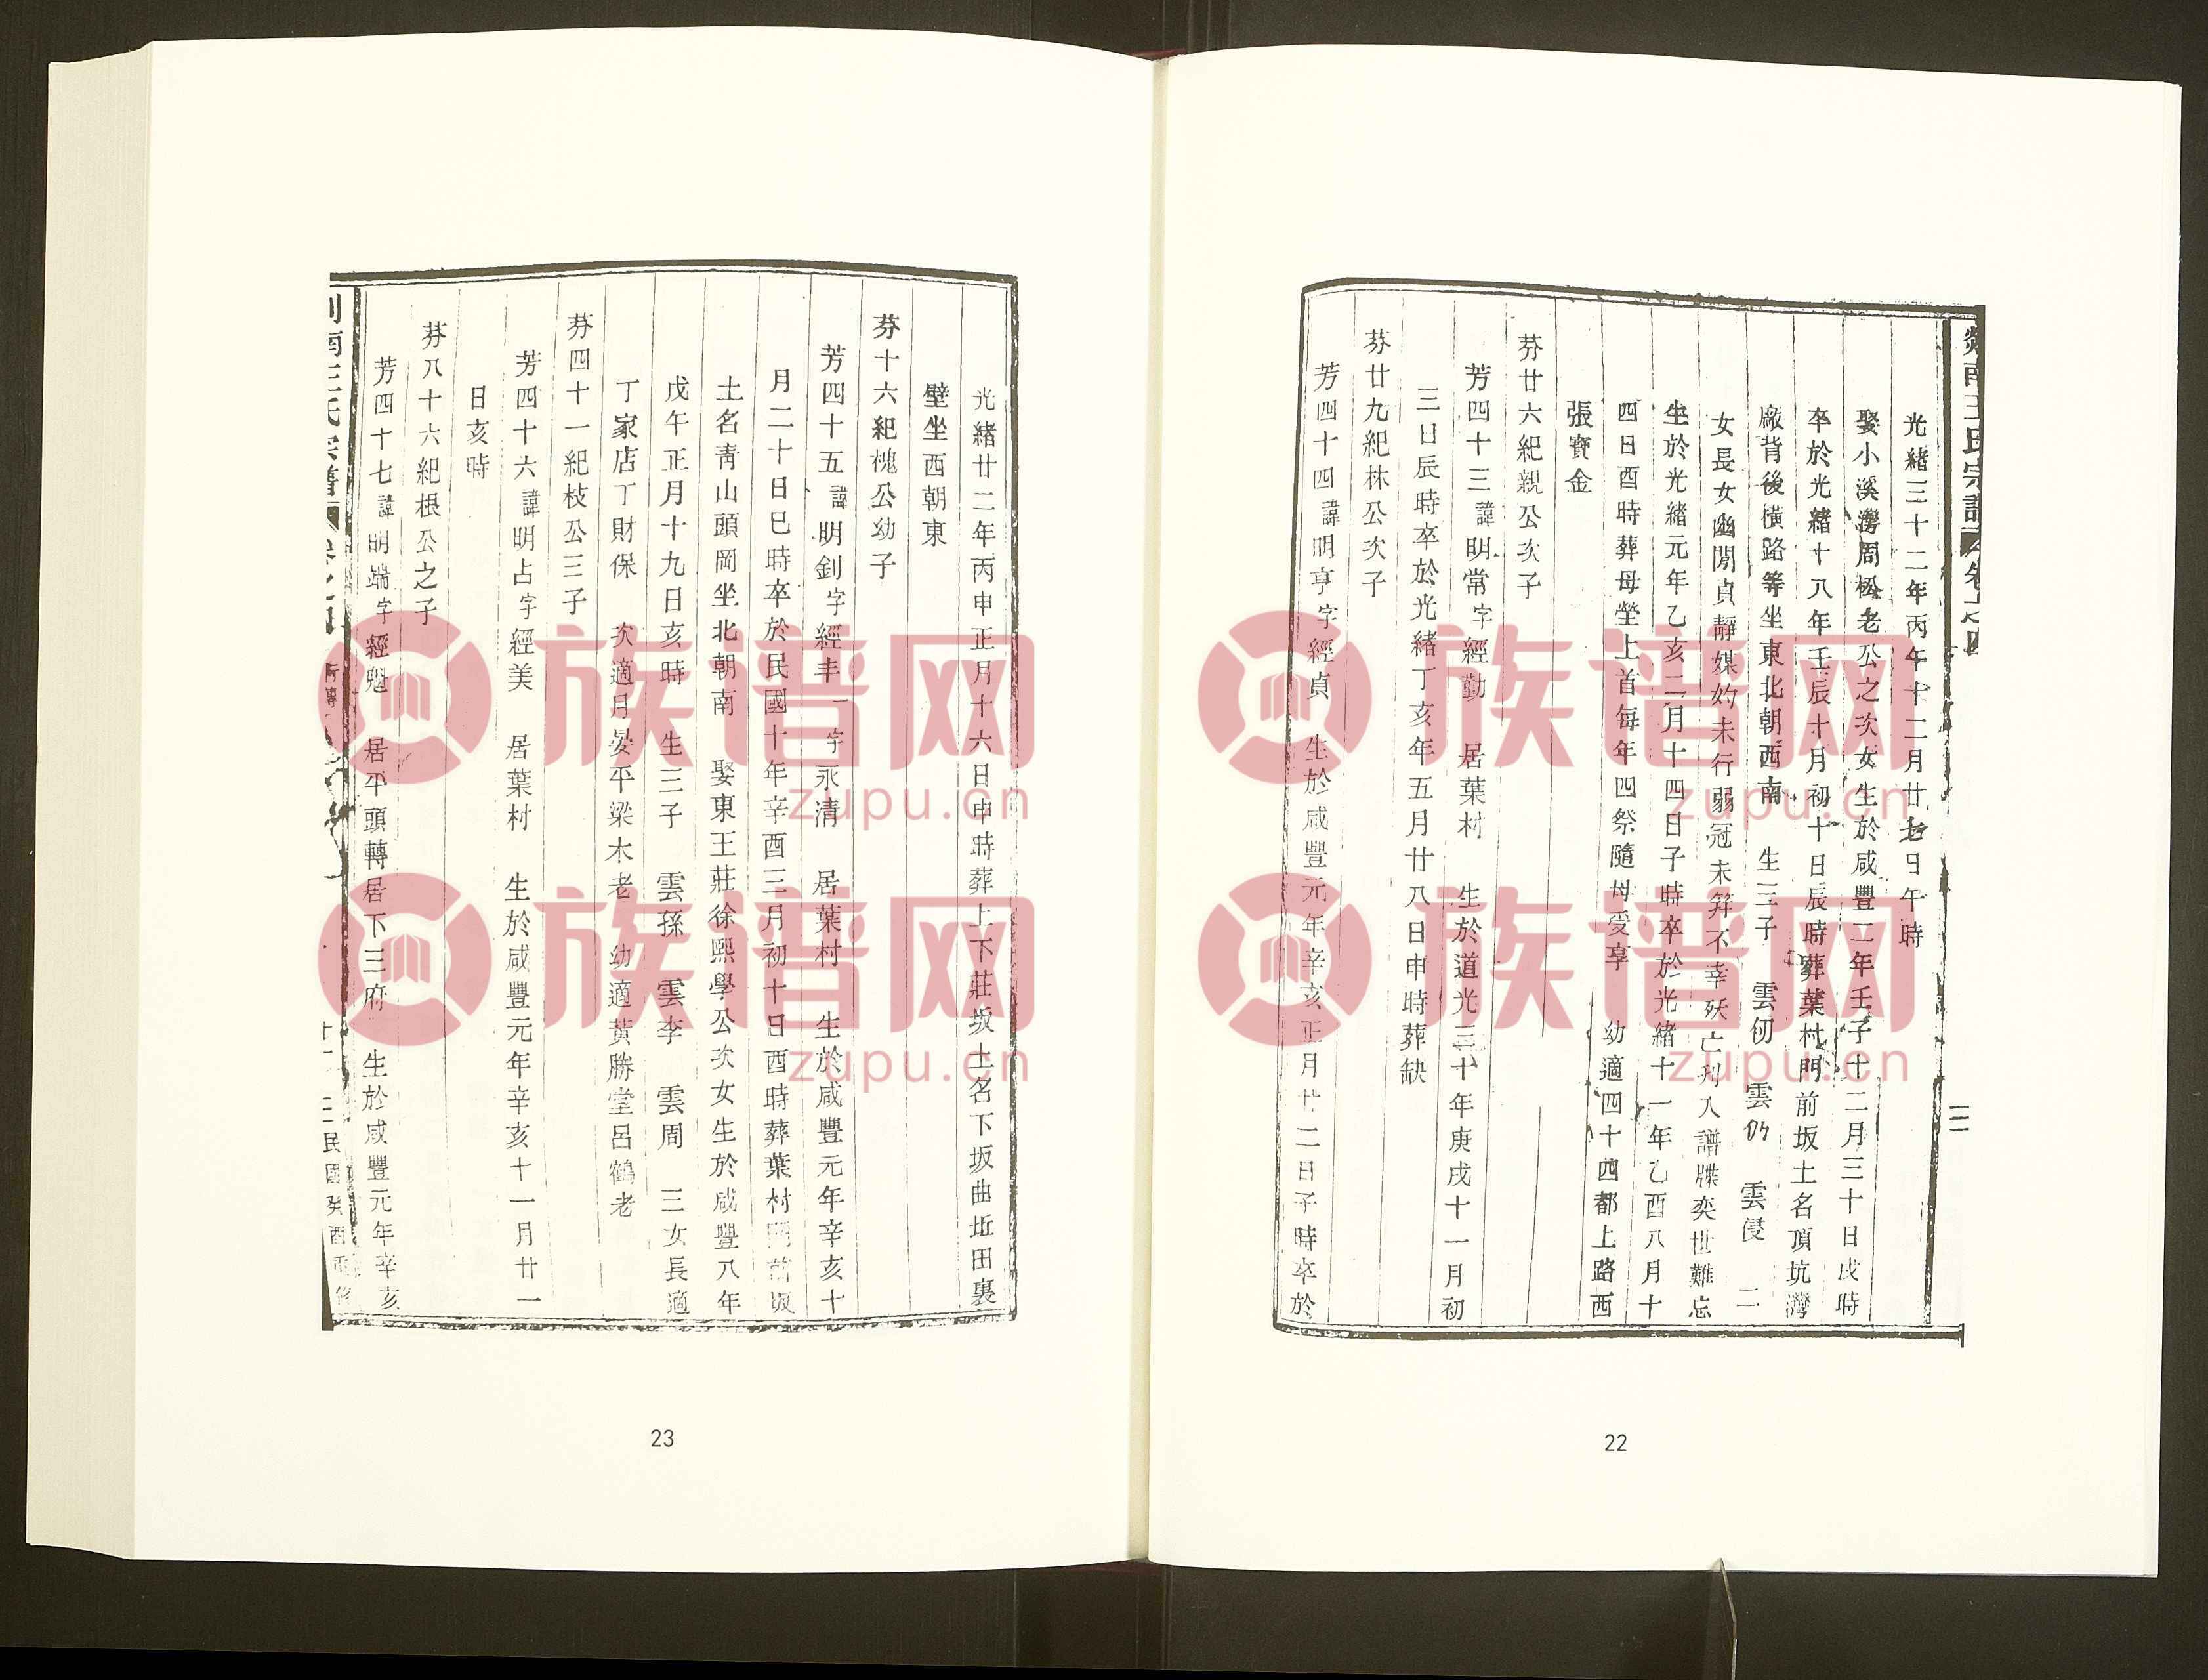 南王氏宗譜 卷之四
光緒三十二年丙午十二月廿七日午時
娶小溪灣周松老公之次女生於咸豐二年壬子十二月三十日戌時
卒於光緒十八年壬辰十月初十日辰時葬葉村門前坂土名頂坑灣
廠背後橫路等坐東北朝西南 生三子 雲仞 雲仍 雲侵 二
女長女幽閒貞靜媒妁未行弱冠未笄不幸殀亡刋入譜牒奕世難忘
生於光緒元年乙亥二月十四日子時卒於光緒十一年乙酉八月十
四日酉時葬母塋上首每年四祭隨母受享 幼適四十四都上路西
張寶金
芬廿六紀親公次子
芳四十三諱明常字經勤 居葉村 生於道光三十年庚戌十一月初
三日辰時卒於光緒丁亥年五月廿八日申時葬缺
芬廿九紀株公次子
芳四十四諱明亨字經貞 生於咸豐元年辛亥正月廿二日子時卒於
22
光緒廿二年丙申正月十六日申時葬上下莊坂土名下坂曲坵田裏
壁坐西朝東
芬十六紀槐公幼子
芳四十五諱明釗字經丰一字永清 居葉村 生於咸豐元年辛亥十
月二十日巳時卒於民國十年辛酉三月初十日酉時葬葉村門前坂
土名青山頭岡坐北朝南 娶東王莊徐熙學公次女生於咸豐八年
戊午正月十九日亥時 生三子 雲孫 雲李 雲周 三女長適
丁家店丁財保 次適月晏平梁木老 幼適黃勝堂呂鶴老
芬四十一紀枝公三子
芳四十六諱明占字經美 居葉村 生於咸豐元年辛亥十一月廿一
日亥時
芬八十六紀根公之子
芳四十七諱明端字經魁 居平頭轉居下三府 生於咸豐元年辛亥
南王氏宗譜 行傳 民國癸酉重修
23
族谱网
zupu.cn
族谱网
zupu.cn
族谱网
zupu.cn
族谱网
zupu.cn